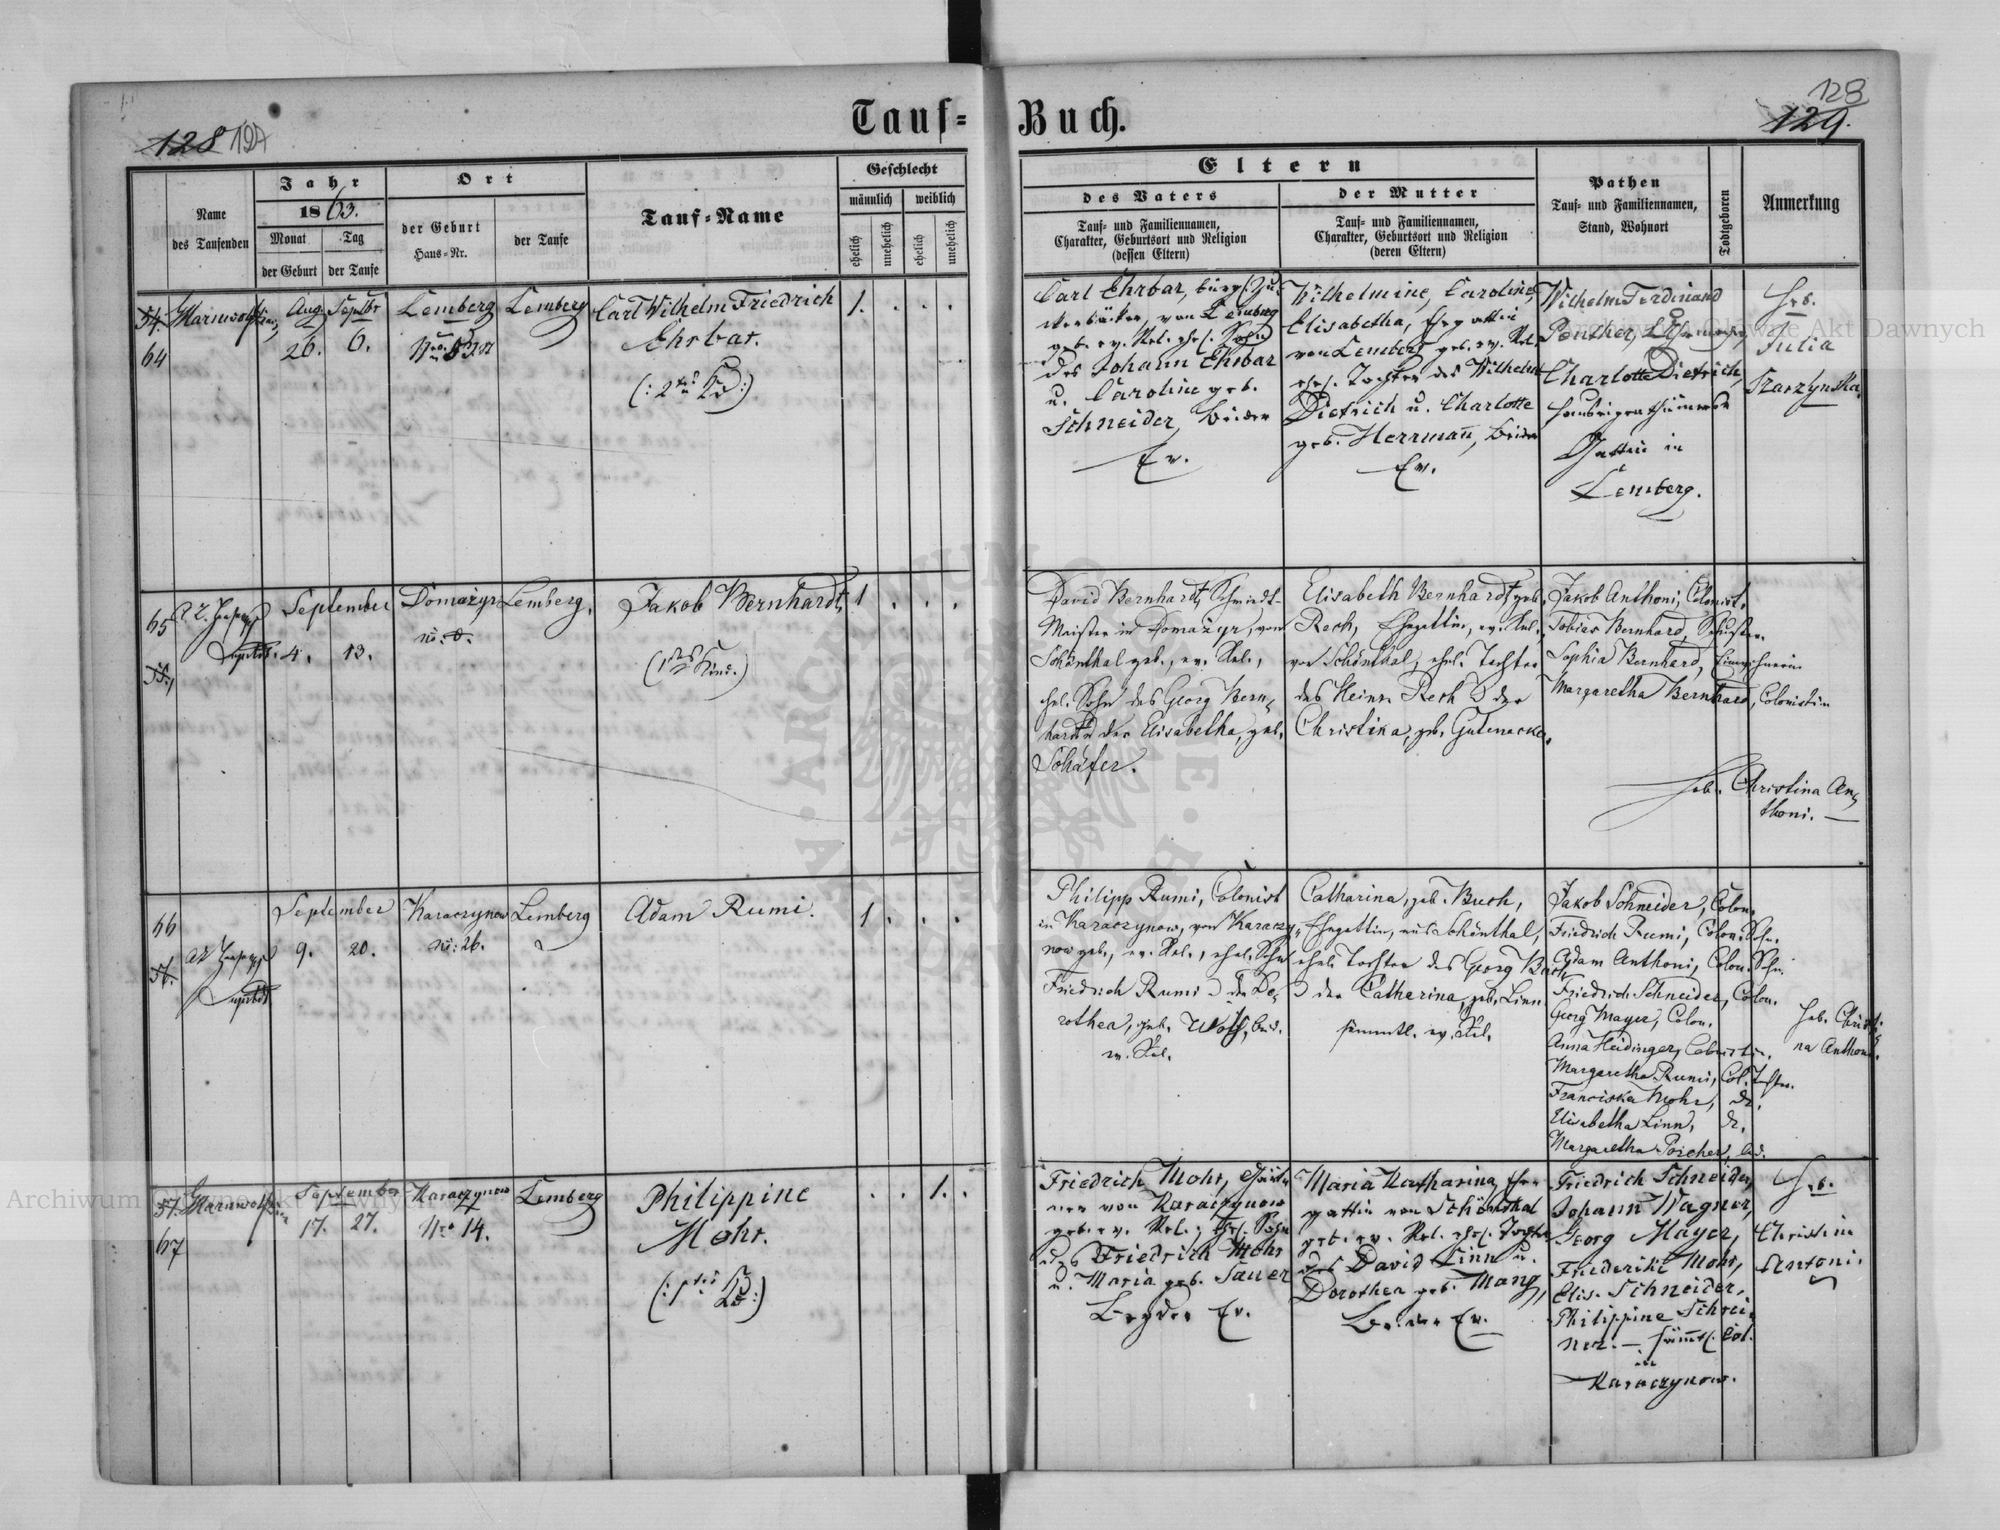 128 127
Tauf-Buch.
128
129.
Name
des Taufenden
Jahr
1863.
Monat
der Geburt
Tag
der Taufe
Ort
der Geburt
Haus-Nr.
der Taufe
Tauf-Name
Geschlecht
männlich
weiblich
ehelich
unehelich
ehelich
unehelich
Eltern
des Vaters
Tauf- und Familiennamen,
Charakter, Geburtsort und Religion
(dessen Eltern)
der Mutter
Tauf- und Familiennamen,
Charakter, Geburtsort und Religion
(deren Eltern)
Pathen
Tauf- und Familiennamen,
Stand, Wohnort
Todtgeboren
Anmerkung
54.
64
Aug.
26.
Septbr
6.
Lemberg
Lemberg
Carl Wilhelm Friedrich
Ehrbar.
(: 2tes Kd :)
1. . . .
Carl Ehrbar, bürgl. Zu-
ckerbäcker, von Lemberg
geb. ev. Rel. ehel. Sohn
des Johann Ehrbar
u. Caroline geb.
Schneider, beide
Ev.
Wilhelmine, Caroline,
Elisabetha, Ehegattin
von Lemberg geb. ev. Rel.
ehel. Tochter des Wilhelm
Dietrich u. Charlotte
geb. Herrmañ, beide
Ev.
Wilhelm Ferdinand
Penther,
Charlotte Dietrich,
Gattin in
Lemberg.
Heb.
Julia
65
55.
September
4. 13.
Domazyr
Lemberg.
Jakob Bernhardt,
(1tes Kind.)
1 . . .
David Bernhardt, Schmidt-
Meister in Domazyr, von
Schönthal geb., ev. Rel.,
ehel. Sohn des Georg Bern-
hardt u der Elisabetha, geb.
Schäfer.
Elisabeth Bernhardt geb.
Rech, Ehegattin, ev. Rel.,
von Schönthal, ehel. Tochter
des Heinr. Rech & der
Christina, geb. Gutenacker.
Jakob Anthoni, Colonist.
Tobias Bernhard, Schuster.
Sophia Bernhard,
Margaretha Bernhard, Colonistin
Heb. Christina An-
thoni.
66
56.
September
9. 20.
Karaczynow
No: 26.
Lemberg
Adam Rumi.
1 . . .
Philipp Rumi, Colonist
in Karaczynow, von Karaczy-
now geb., ev. Rel., ehel. Sohn
Friedrich Rumi & der Do-
rothea, geb. Wolf, beid.
ev. Rel.
Catharina, geb. Buch,
Ehegattin, aus Schönthal,
ehel. Tochter des Georg Buch
& der Catherina, geb. Linn
sämmtl. ev. Rel.
Jakob Schneider, Colon.
Friedrich Rumi, Colon. Sohn.
Adam Anthoni, Colon. Sohn.
Friedrich Schneider, Colon.
Georg Mayer, Colon.
Anna Heidinger, Colonistin.
Margaretha Rumi, Col. Tochter.
Franciska Mohr, do.
Elisabetha Linn, do.
Margaretha
Heb. Christi-
na Anthoni.
57.
67
September
17. 27.
Karaczynow
Nro 14.
Lemberg
Philippine
Mohr.
(: 1tes Kd :)
. . 1. .
Friedrich Mohr,
von Karaczynow
geb. ev. Rel., ehel. Sohn
des Friedrich Mohr
u. Maria geb. Sauer
Beyde Ev.
Maria Katharina, Ehe-
gattin von Schönthal
geb. ev. Rel. ehel. Tochter
des David Linn u.
Dorothea geb. Mang,
beide Ev.
Friedrich Schneider,
Johann Wagner,
Georg Mayer,
Friederike Mohr,
Elis. Schneider,
Philippine Schrei-
ner. — sämtl. Col.
Karaczynow.
Heb.
Christina
Antoni.
Archiwum Główne Akt Dawnych
Archiwum Główne Akt Dawnych